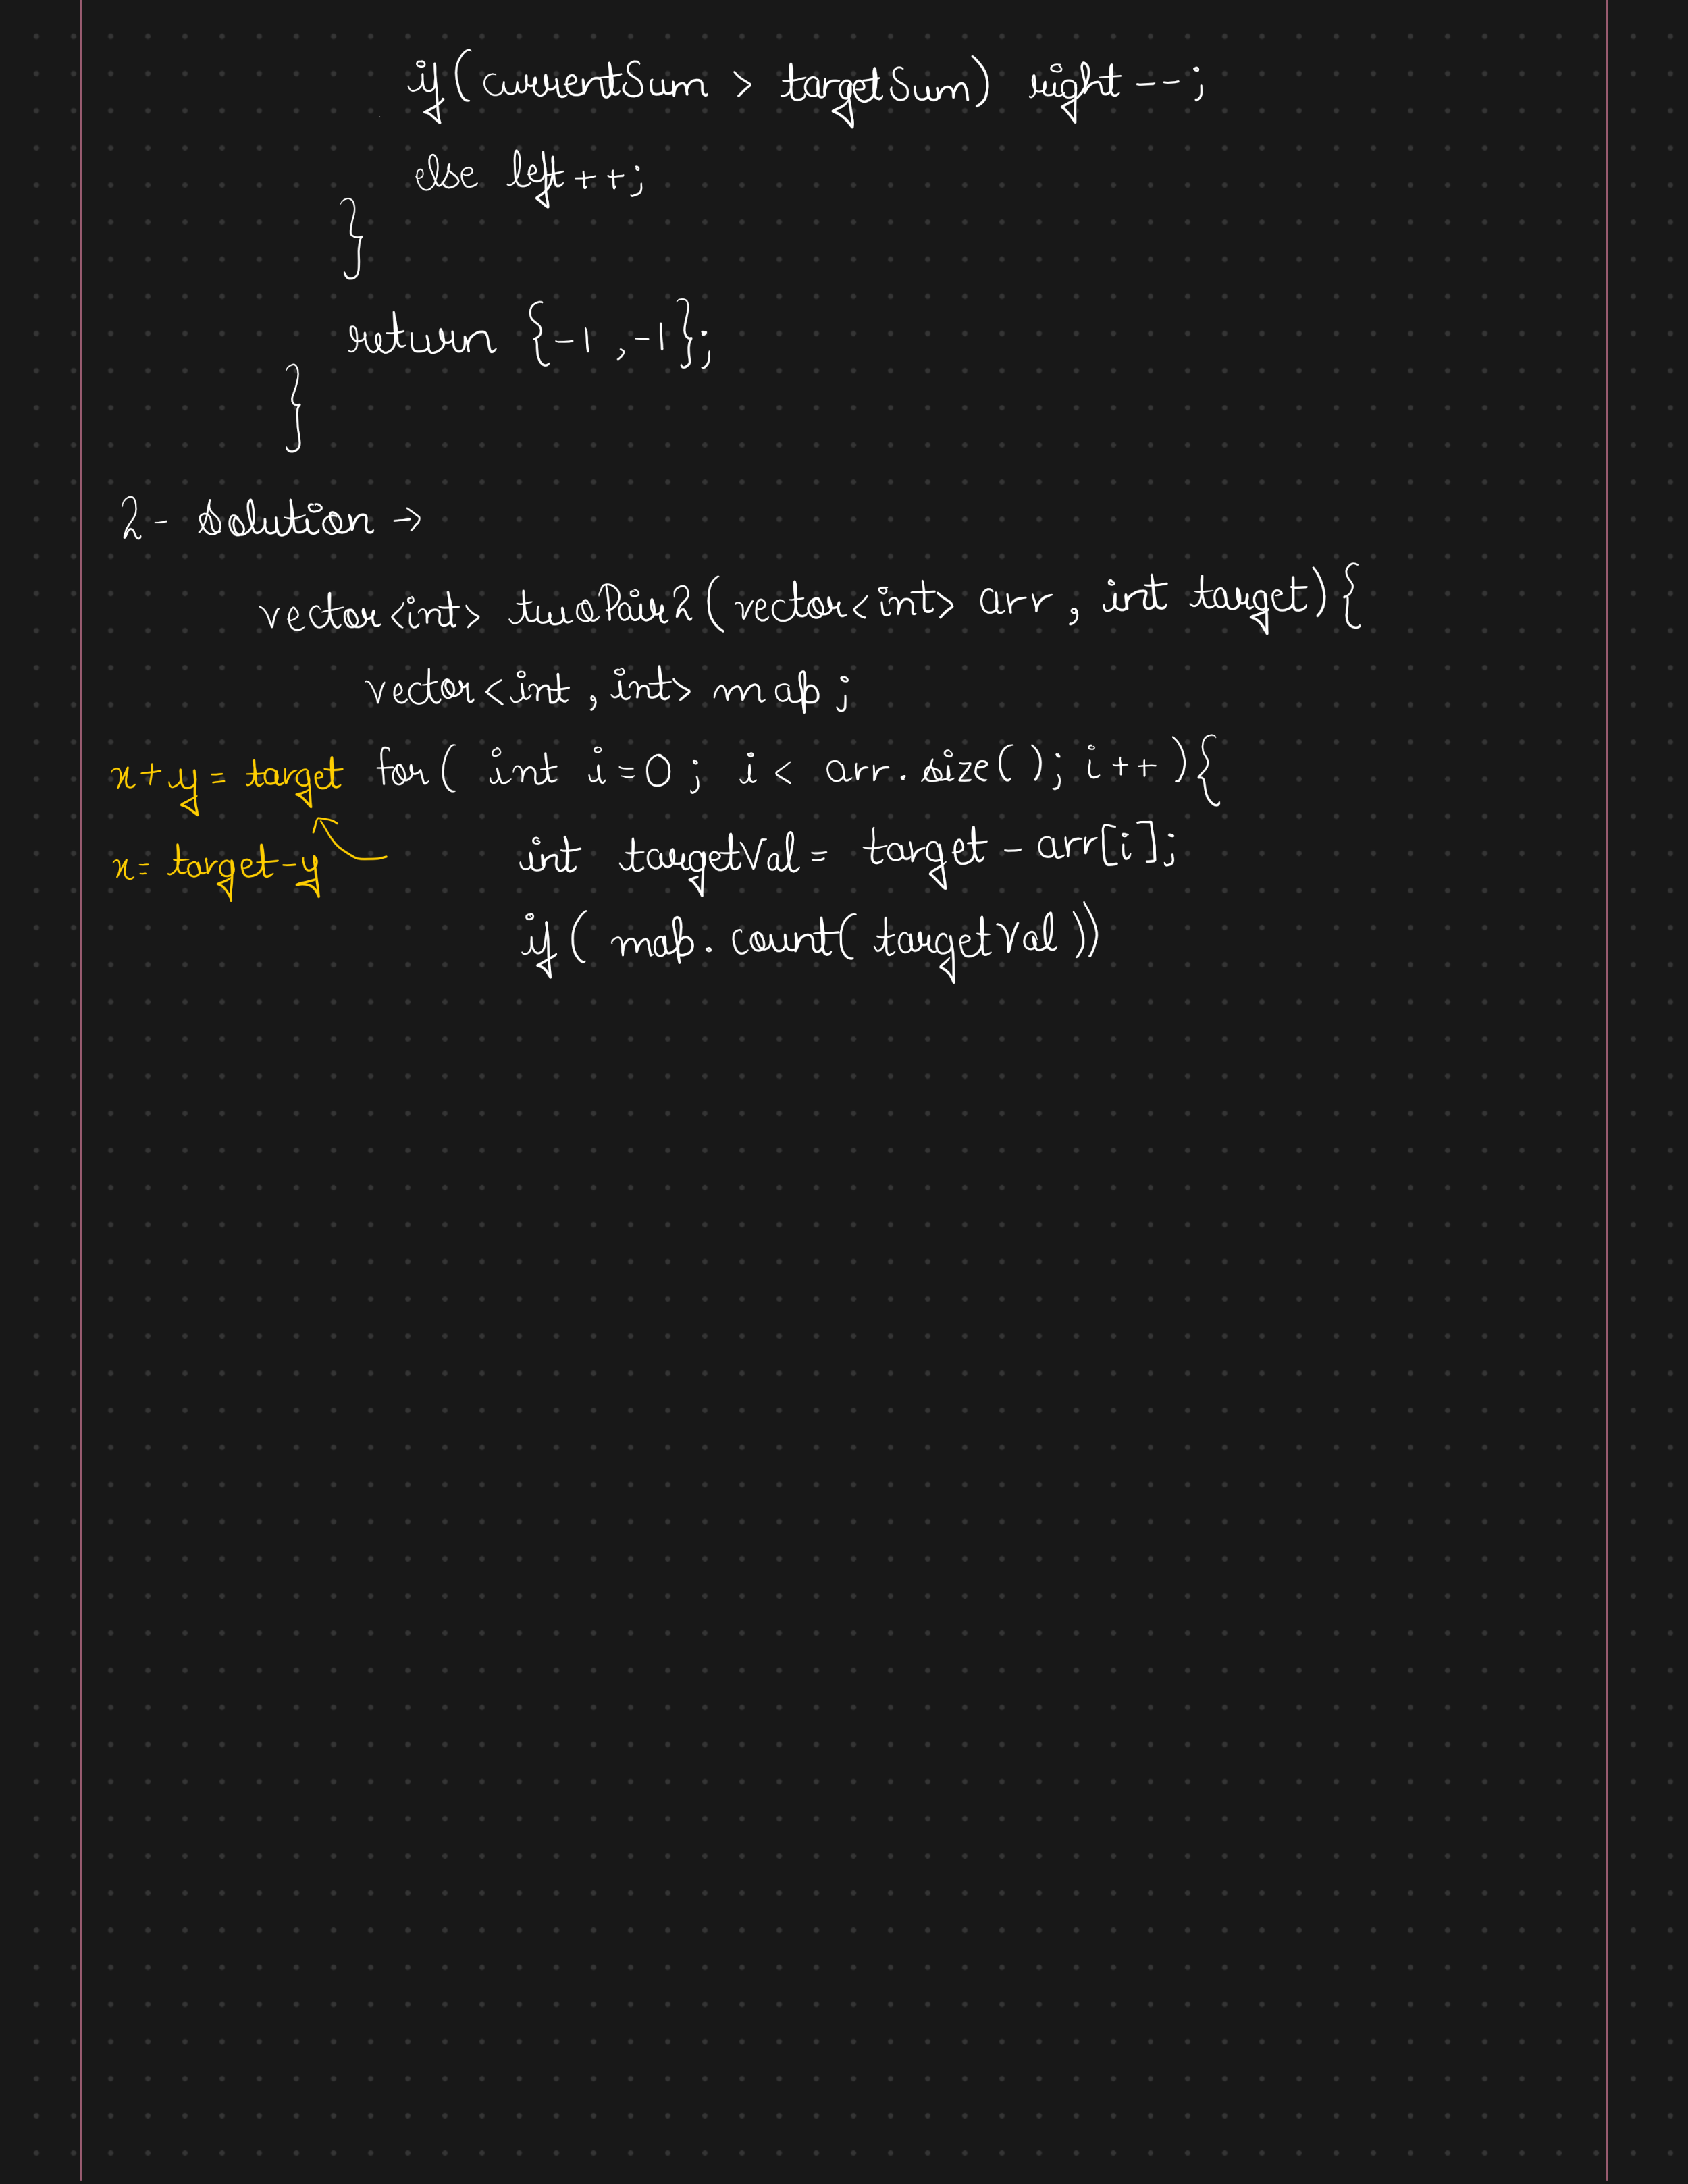 if(currentSum > targetSum) right--;
else left++;
}
return {-1,-1};
}
2- Solution →
vector<int> twoPair2(vector<int> arr, int target){
vector<int, int> map;
x+y = target for( int i=0; i < arr.size(); i++){
x= target-y int targetVal = target - arr[i];
if( map.count(targetVal))